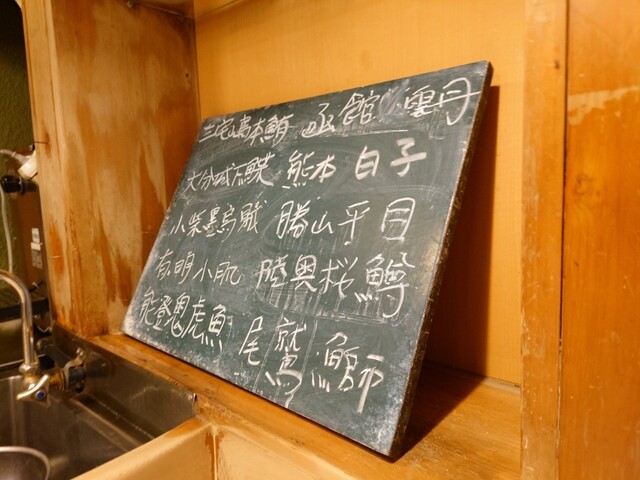 三宅島本鮪 函館 雲丹
大分城下鰈 熊本 白子
小柴墨烏賊 勝山平目
有明小肌 陸奥桜鱒
能登鬼虎魚 尾鷲 鰤